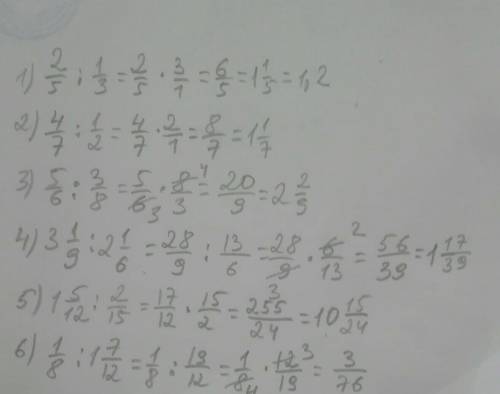 1) 2/5 : 1/3 = 2/5 · 3/1 = 6/5 = 1 1/5 = 1,2
2) 4/7 : 1/2 = 4/7 · 2/1 = 8/7 = 1 1/7
3) 5/6 : 3/8 = 5/6 3 · 8/3 4 = 20/9 = 2 2/9
4) 3 1/9 : 2 1/6 = 28/9 : 13/6 = 28/9 3 · 6/13 2 = 56/39 = 1 17/39
5) 1 5/12 : 2/15 = 17/12 · 15/2 = 255/24 = 10 15/24
6) 1/8 : 1 7/12 = 1/8 : 19/12 = 1/8 4 · 12/19 3 = 3/76